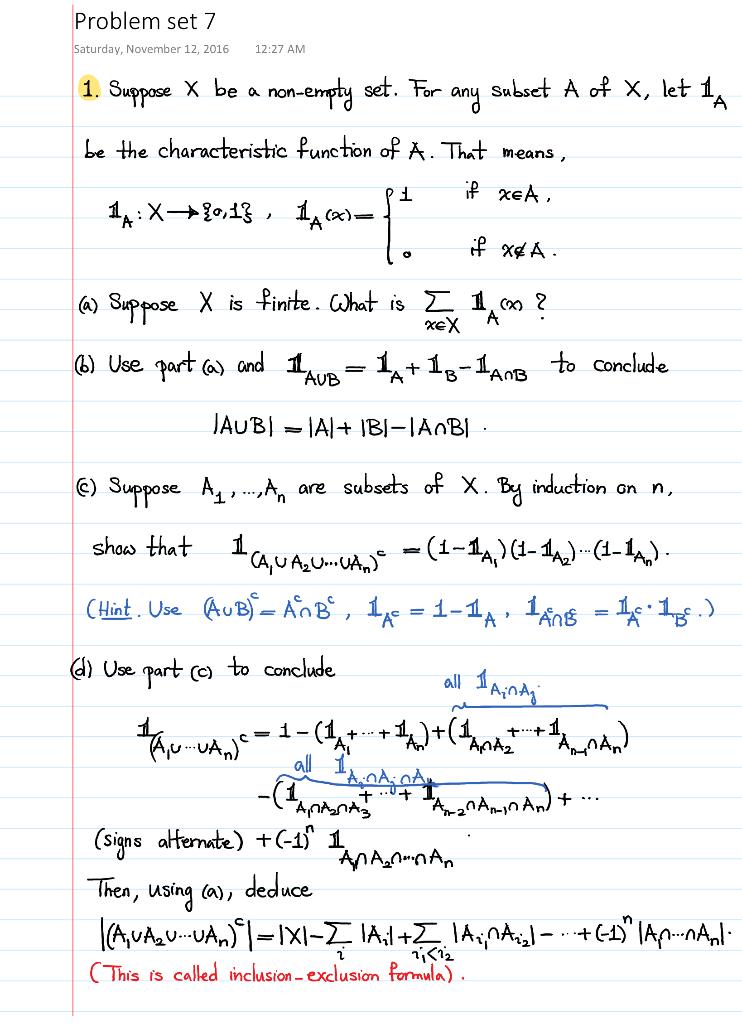 Problem set 7
Saturday, November 12, 2016 12:27 AM
1. Suppose X be a non-empty set. For any subset A of X, let 𝟙_A
be the characteristic function of A. That means,
𝟙_A : X → {0,1} , 𝟙_A(x) = { 1 if x∈A,
0 if x∉A.
(a) Suppose X is finite. What is Σ_{x∈X} 𝟙_A(x) ?
(b) Use part (a) and 𝟙_{A∪B} = 𝟙_A + 𝟙_B − 𝟙_{A∩B} to conclude
|A∪B| = |A| + |B| − |A∩B| .
(c) Suppose A_1, ..., A_n are subsets of X. By induction on n,
show that 𝟙_{(A_1∪A_2∪···∪A_n)^c} = (1−𝟙_{A_1})(1−𝟙_{A_2})···(1−𝟙_{A_n}).
(Hint. Use (A∪B)^c = A^c∩B^c , 𝟙_{A^c} = 1−𝟙_A , 𝟙_{A^c∩B^c} = 𝟙_{A^c}·𝟙_{B^c} .)
(d) Use part (c) to conclude
all 𝟙_{A_i∩A_j}
𝟙_{(A_1∪···∪A_n)^c} = 1 − (𝟙_{A_1}+···+𝟙_{A_n}) + (𝟙_{A_1∩A_2}+···+𝟙_{A_{n-1}∩A_n})
all 𝟙_{A_i∩A_j∩A_k}
−(𝟙_{A_1∩A_2∩A_3} + ··· + 𝟙_{A_{n-2}∩A_{n-1}∩A_n}) + ···
(signs alternate) + (-1)^n 𝟙_{A_1∩A_2∩···∩A_n}
Then, using (a), deduce
|(A_1∪A_2∪···∪A_n)^c| = |X| − Σ_i |A_i| + Σ_{i_1<i_2} |A_{i_1}∩A_{i_2}| − ··· + (-1)^n |A_1∩···∩A_n|.
(This is called inclusion-exclusion formula).